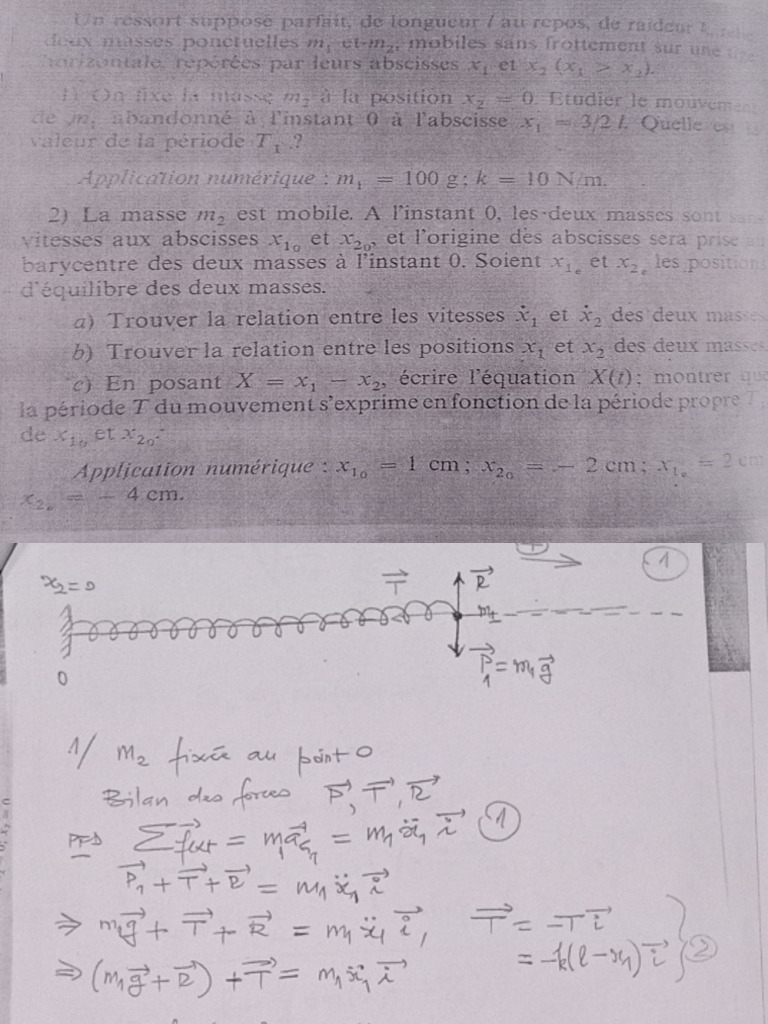 Un ressort supposé parfait, de longueur l au repos, de raideur k, relie
deux masses ponctuelles m₁ et m₂, mobiles sans frottement sur une tige
horizontale, repérées par leurs abscisses x₁ et x₂ (x₁ > x₂).
1) On fixe la masse m₂ à la position x₂ = 0. Etudier le mouvement
de m₁ abandonné à l'instant 0 à l'abscisse x₁ = 3/2 l. Quelle est la
valeur de la période T₁ ?
Application numérique : m₁ = 100 g ; k = 10 N/m.
2) La masse m₂ est mobile. A l'instant 0, les deux masses sont sans
vitesses aux abscisses x₁₀ et x₂₀, et l'origine des abscisses sera prise au
barycentre des deux masses à l'instant 0. Soient x₁ₑ et x₂ₑ les positions
d'équilibre des deux masses.
a) Trouver la relation entre les vitesses ẋ₁ et ẋ₂ des deux masses.
b) Trouver la relation entre les positions x₁ et x₂ des deux masses.
c) En posant X = x₁ − x₂, écrire l'équation X(t) ; montrer que
la période T du mouvement s'exprime en fonction de la période propre T₁,
de x₁₀ et x₂₀.
Application numérique : x₁₀ = 1 cm ; x₂₀ = − 2 cm ; x₁ₑ = 2 cm
x₂ₑ = − 4 cm.
+ → 1
x₂=0 T⃗ R⃗
m₁
0 P⃗₁ = m₁g⃗
1/ m₂ fixée au point 0
Bilan des forces P⃗, T⃗, R⃗
PFD Σf⃗ext = m₁a⃗G₁ = m₁ẍ₁ i⃗ 1
P⃗₁ + T⃗ + R⃗ = m₁ ẍ₁ i⃗
⇒ m₁g⃗ + T⃗ + R⃗ = m₁ ẍ₁ i⃗, T⃗ = -T i⃗
⇒ (m₁g⃗ + R⃗) + T⃗ = m₁ẍ₁ i⃗ = -k(l-x₁) i⃗ } 2